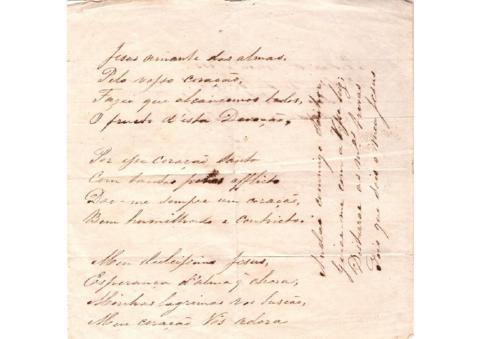 Jesus amante das almas.
Pelo vosso coração,
Fazei que alcancemos todos,
O fructo d'esta Devoção,
Por esse Coração Santo
Com tantas penas afflicto
Dae-me sempre um coração,
Bem humilhado e contricto.
Meu dulcissimo Jesus,
Esperança d'alma q̃ chora,
Minhas lagrimas vos buscão,
Meu coração Vos adora
Andae commigo Senhor,
Guiae-me com a Vossa luz,
as
Pois que sois o meu Jesus